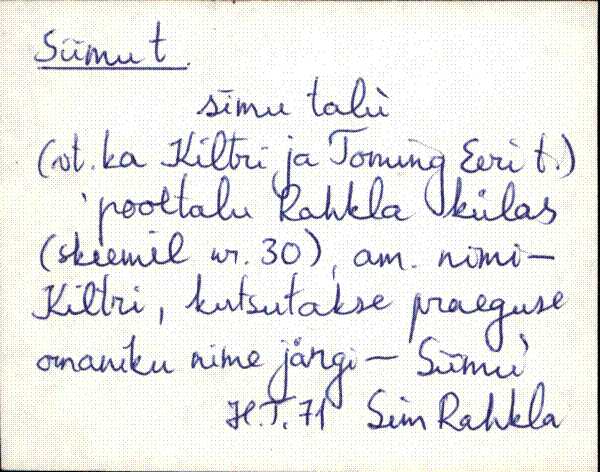 Siimu t.
sīmu talù
(vt. ka Kiltri ja Toming Eeri t.)
`pooltalu Rahkla külas
(skeemil nr. 30), am. nimi –
Kiltri, kutsutakse praeguse
omaniku nime järgi – Siimu`
H.T. 71 Sim Rahkla